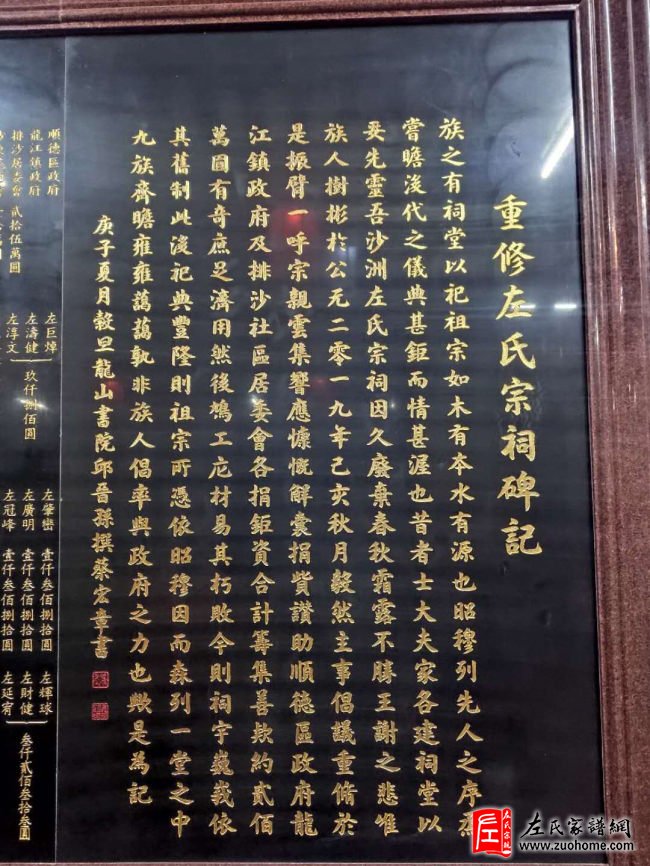 重修左氏宗祠碑記
族之有祠堂以祀祖宗如木有本水有源也昭穆列先人之序烝
嘗瞻後代之儀典甚鉅而情甚渥也昔者士大夫家各建祠堂以
妥先靈吾沙洲左氏宗祠因久廢棄春秋霜露不勝王謝之悲惟
族人樹彬於公元二零一九年己亥秋月毅然主事倡議重脩於
是振臂一呼宗親雲集響應慷慨解囊捐貲讚助順德區政府龍
江鎮政府及排沙社區居委會各捐鉅資合計籌集善款約貳佰
萬圓有奇庶足濟用然後鳩工庀材易其朽敗今則祠宇巍峩依
其舊制此後祀典豐隆則祖宗所憑依昭穆因而森列一堂之中
九族齊瞻雍雍藹藹孰非族人倡率與政府之力也歟是為記
庚子夏月穀旦龍山書院邱晉孫撰蔡宏章書
順德區政府
龍江鎮政府
排沙居委會 貳拾伍萬圓
左巨焯
左濤健
左淳文
玖仟捌佰圓
左肇巒 壹仟叁佰捌拾圓
左廣明 壹仟叁佰捌拾圓
左冠峰 壹仟叁佰捌拾圓
左輝球
左財健
左延宥
叁仟貳佰叁拾叁圓
左氏宗親
左氏家譜網
www.zuohome.com